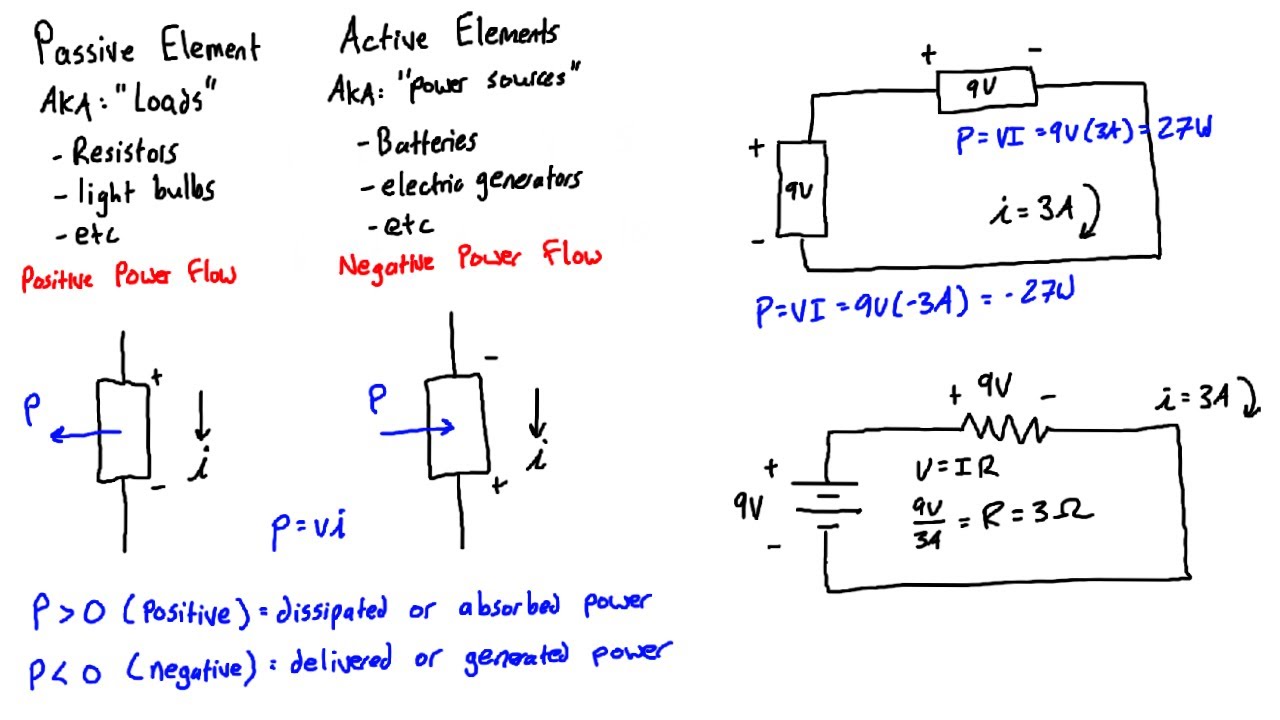 Passive Element
AKA: "Loads"
- Resistors
- light bulbs
- etc
Positive Power Flow
Active Elements
AKA: "power sources"
- Batteries
- electric generators
- etc
Negative Power Flow
+
P
i
-
-
P
i
+
P=vi
P>0 (Positive) = dissipated or absorbed power
P<0 (negative) = delivered or generated power
+ -
9V
P=VI=9V(3A)=27W
+
9V
i=3A
-
P=VI=9V(-3A)=-27W
+ 9V -
i=3A
+
V=IR
9V
9V/3A = R = 3Ω
-